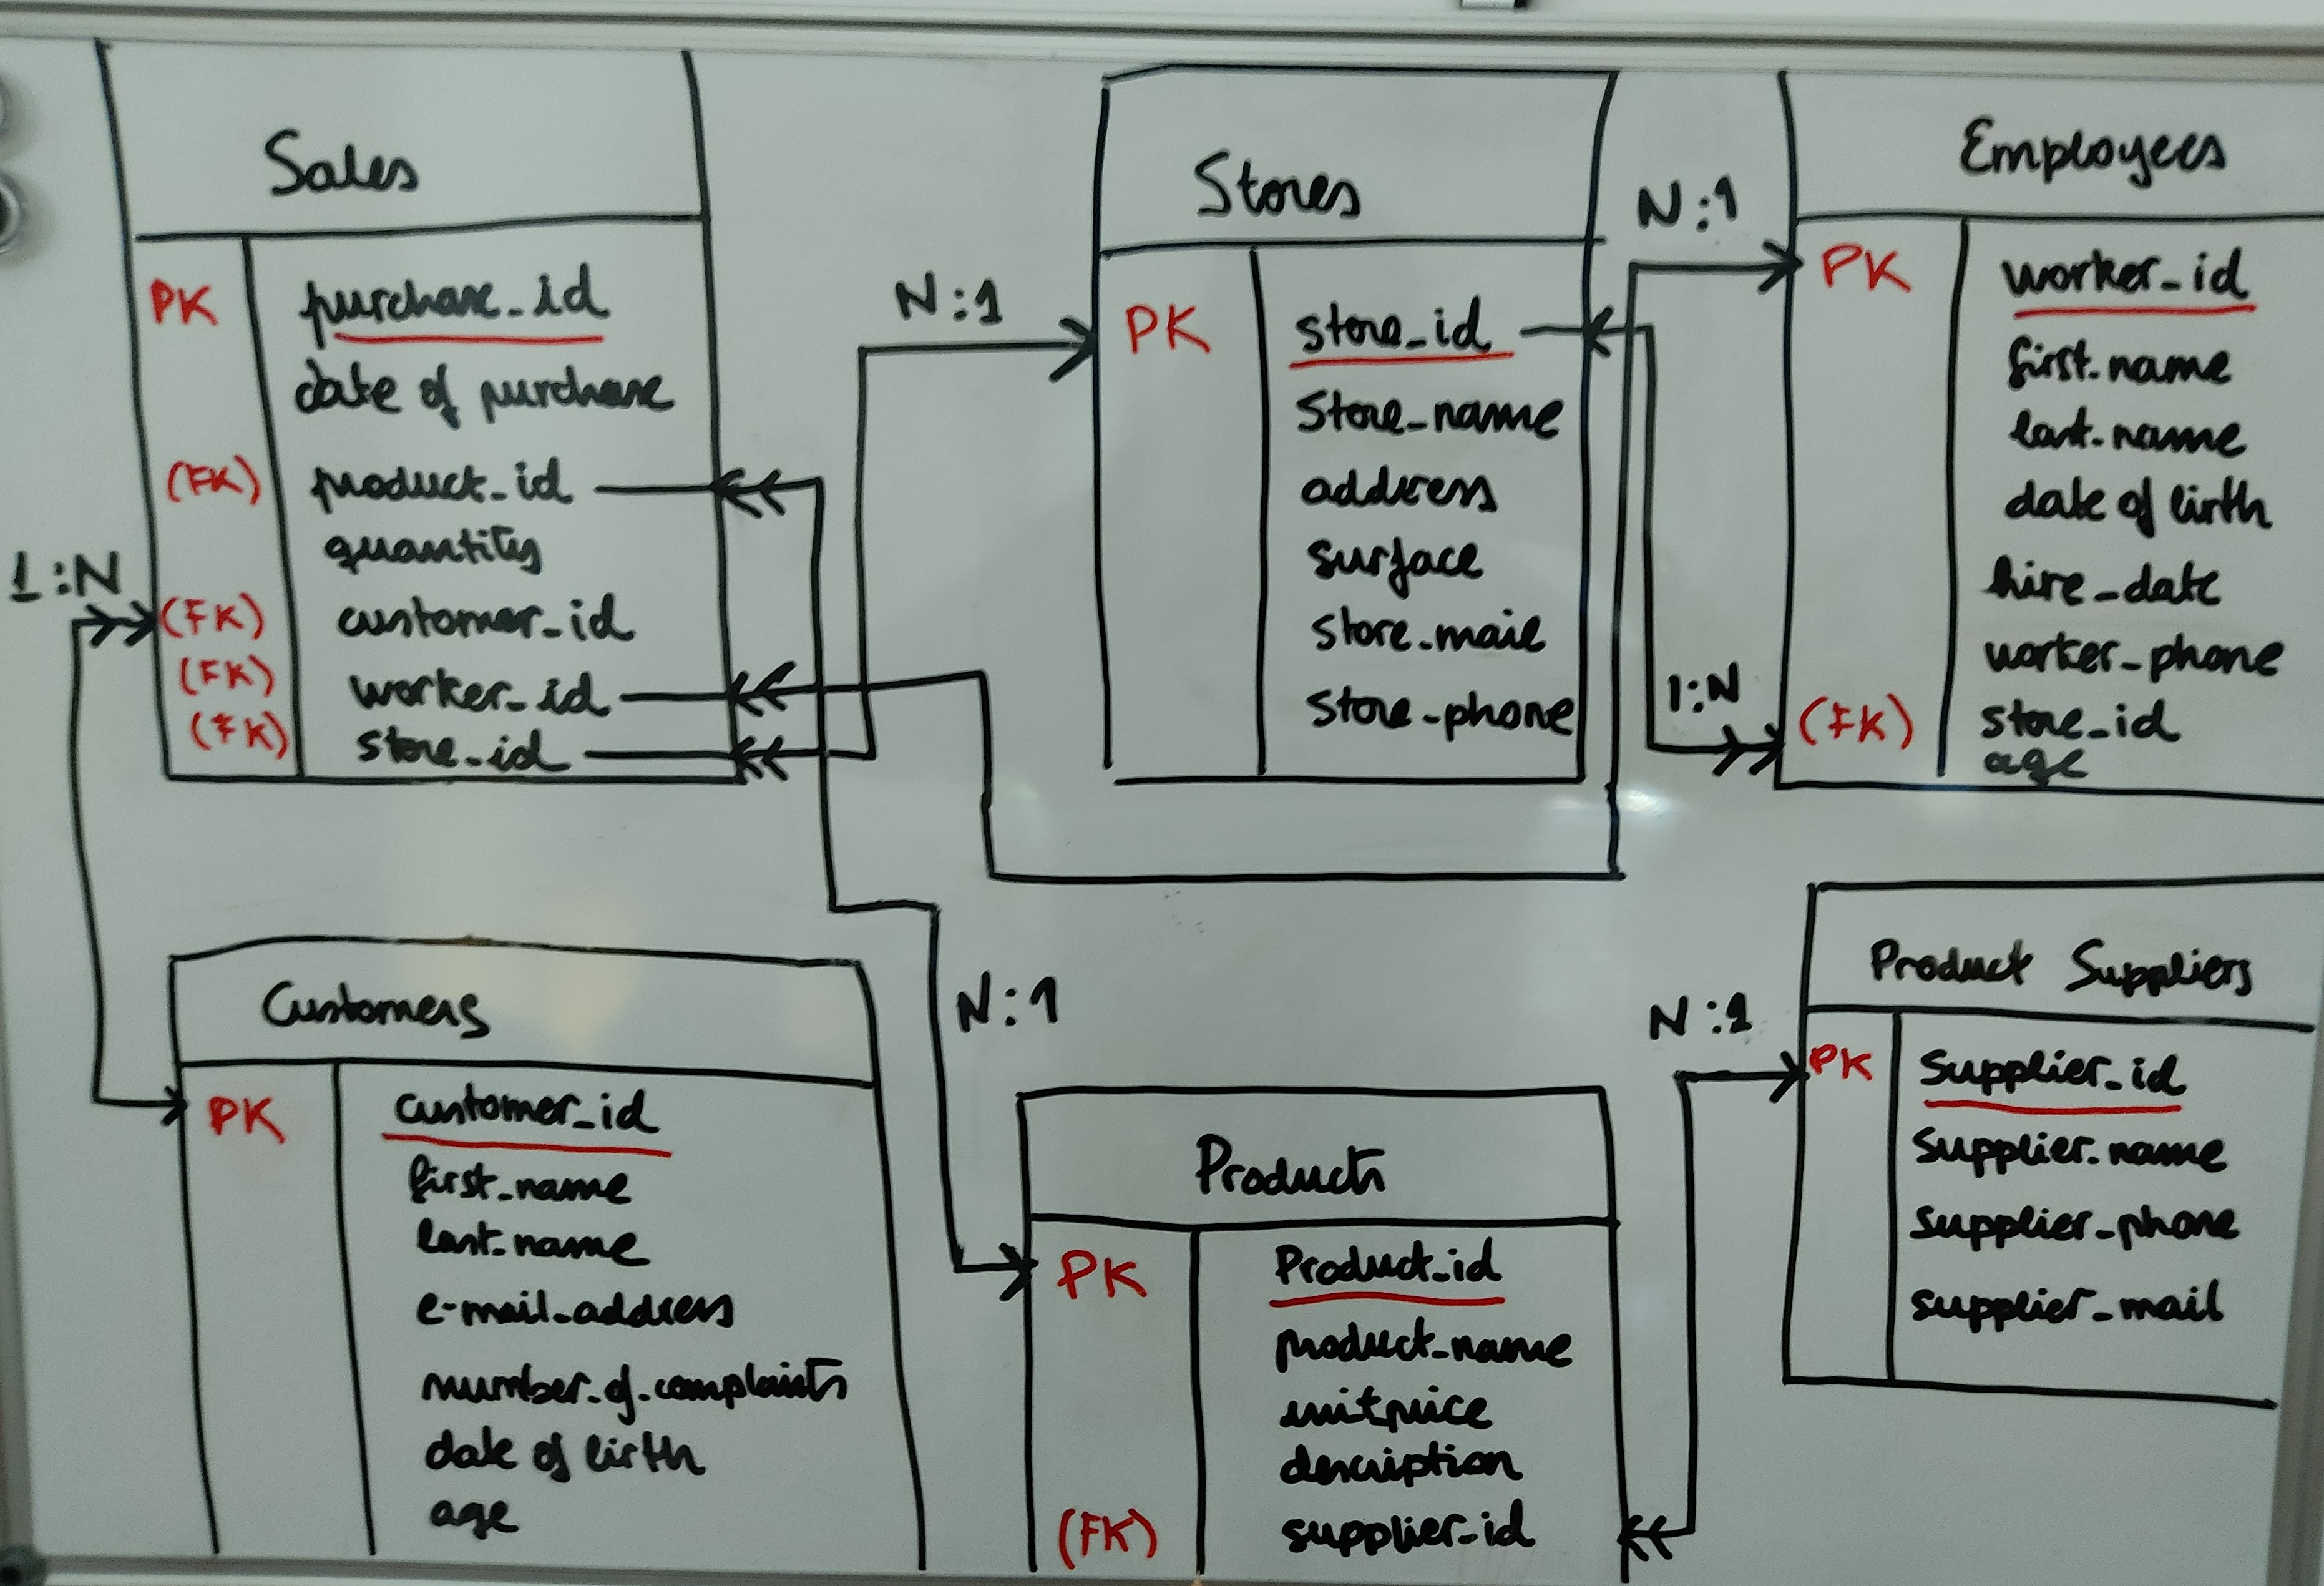 Sales
PK purchase_id
date of purchase
(FK) product_id
quantity
(FK) customer_id
(FK) worker_id
(FK) store_id
1:N
N:1
Stores
PK store_id
Store_name
address
surface
store_mail
store_phone
N:1
1:N
Employees
PK worker_id
first_name
last_name
date of birth
hire_date
worker_phone
(FK) store_id
age
Customers
PK customer_id
first_name
last_name
e-mail_address
number_of_complaints
date of birth
age
N:1
Products
PK Product_id
product_name
unitprice
description
(FK) supplier_id
N:1
Product Suppliers
PK Supplier_id
supplier_name
supplier_phone
supplier_mail